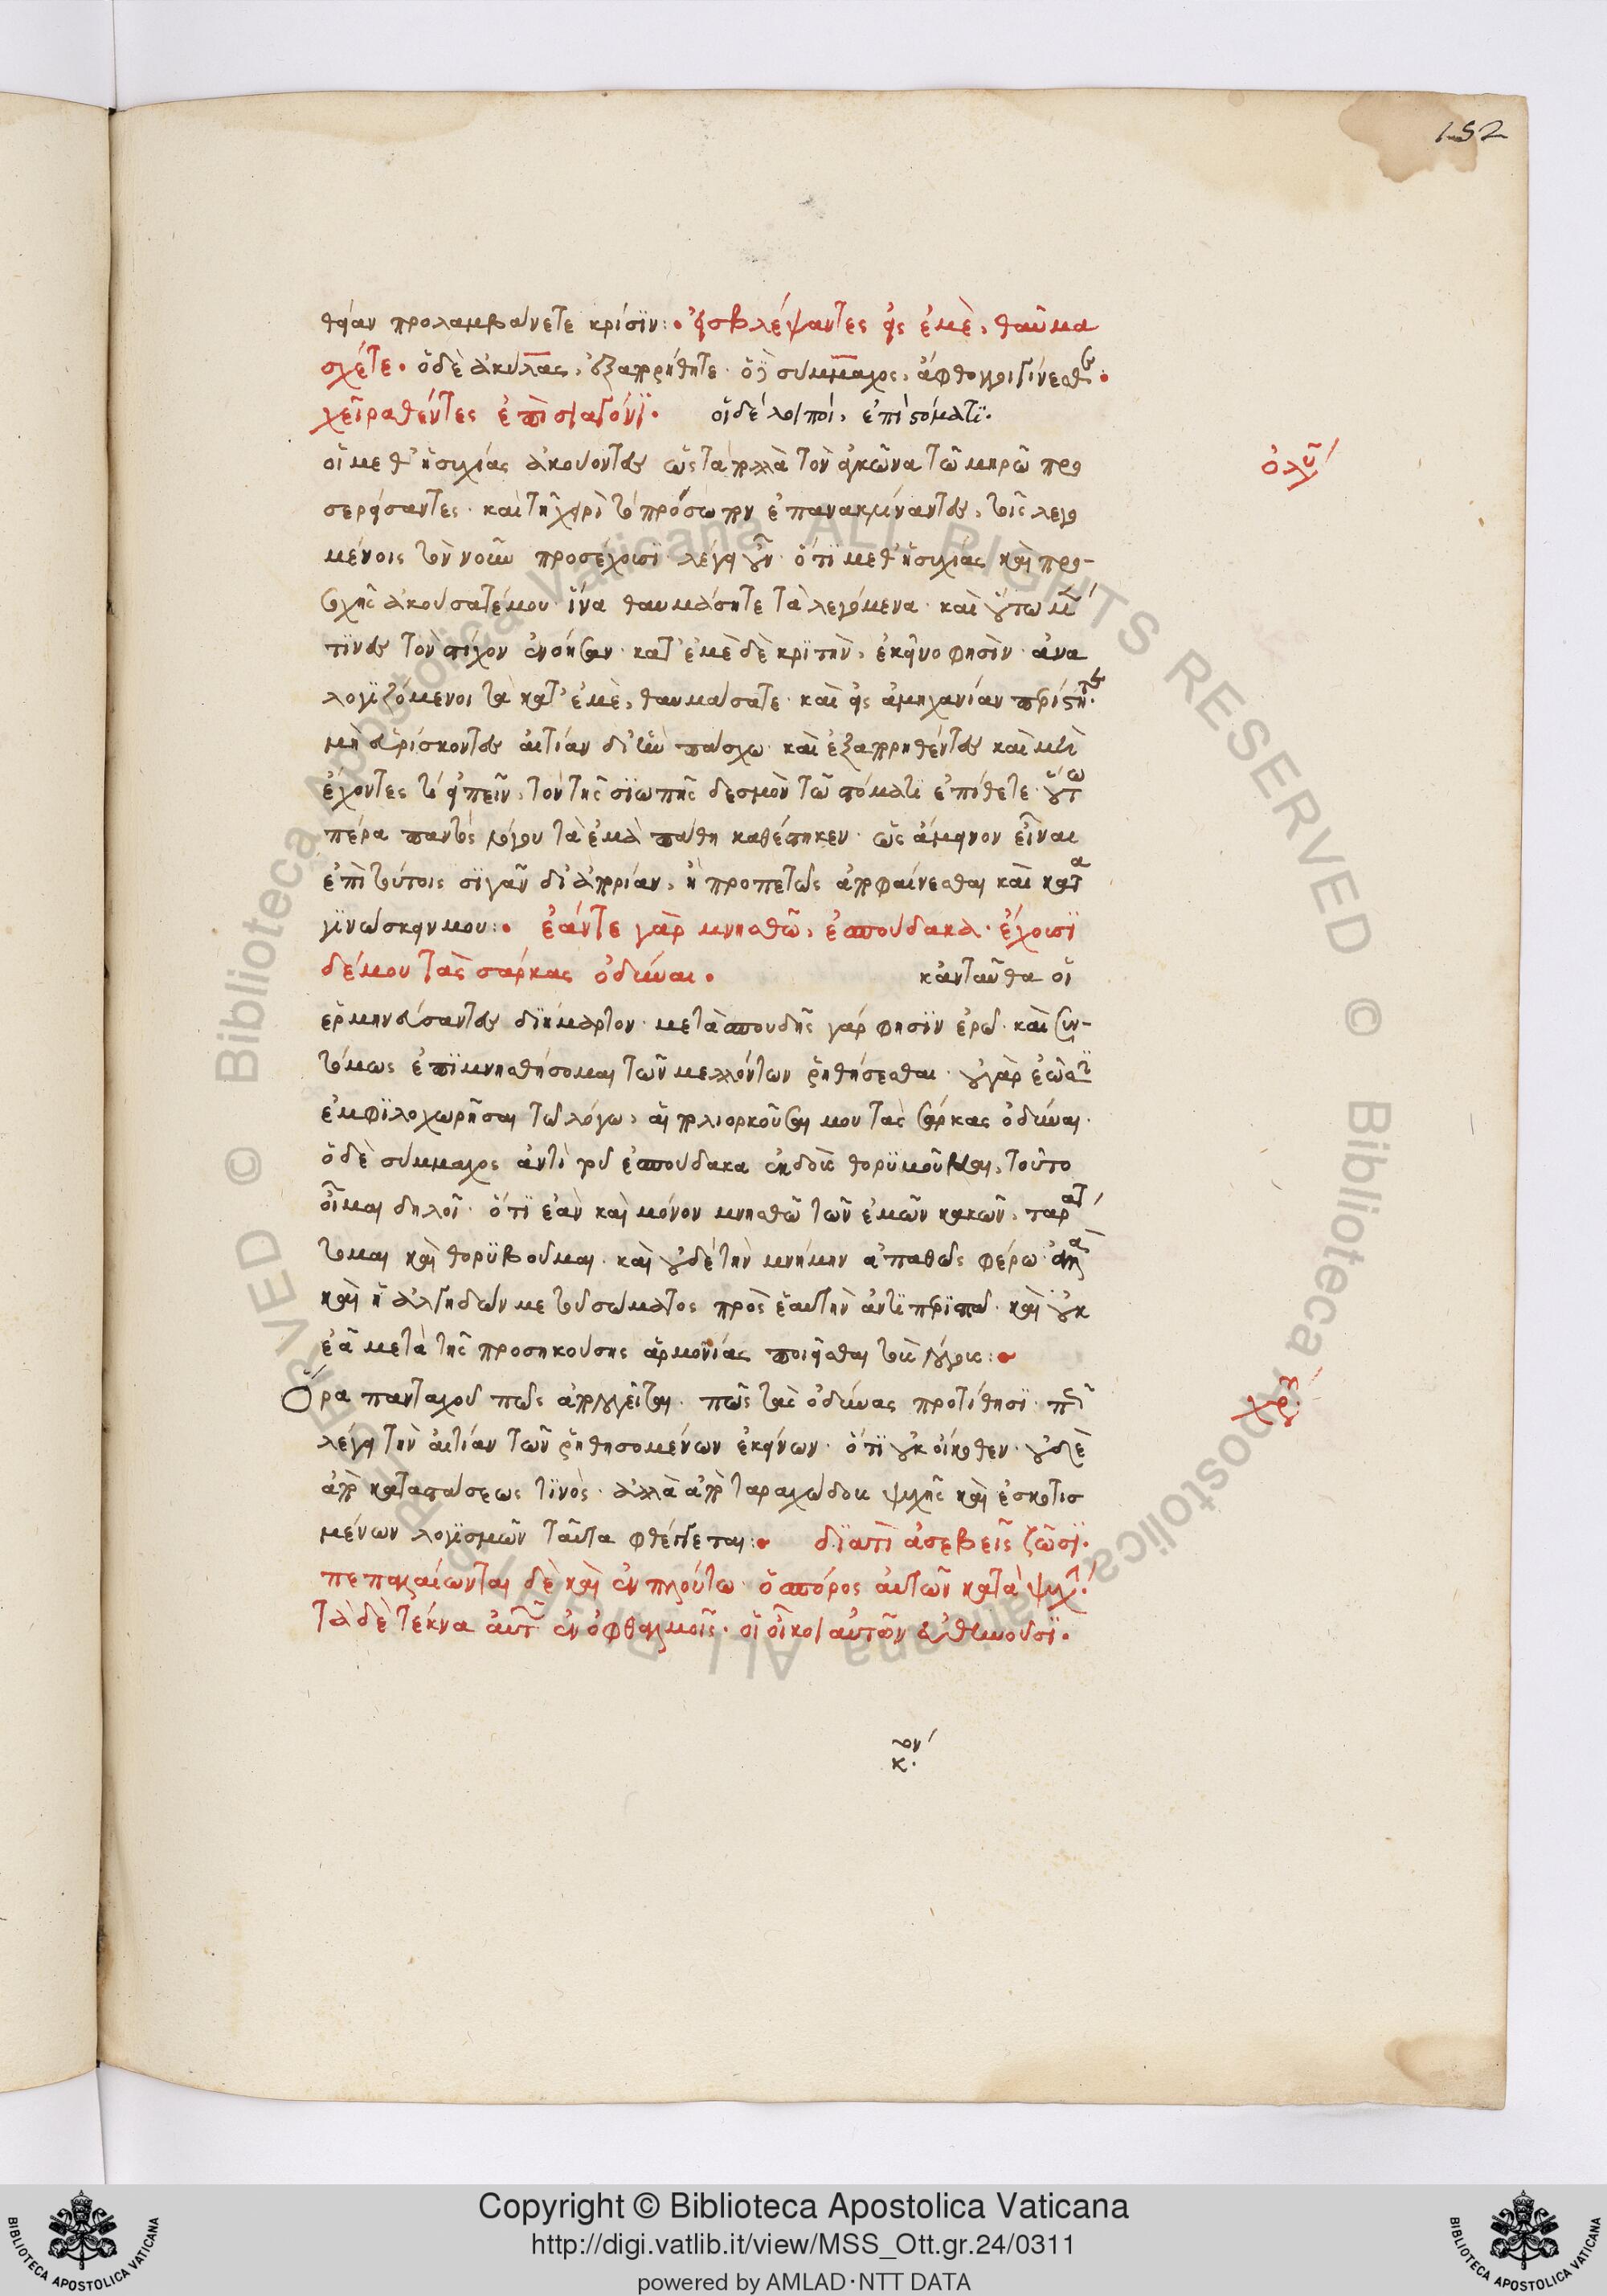 152
θείαν προλαμβάνετε κρίσϊν: εἰσβλέψαντες εἰς ἐμὲ, θαῦμα
σχέτε. ὁ δὲ ἀκύλας, ἐξαπορήθητε. ὁ δὲ σύμμαχος, ἄφθογγοι γίνεσθε.
χεῖρα θέντες ἐπὶ σιαγόνϊ. οἱ δὲ λοιποὶ, ἐπὶ στόματϊ.
οἱ μεθ' ἡσυχίας ἀκούοντες ὡς τὰ πολλὰ τὸν ἀγκῶνα τῶ μηρῶ προ
σερείσαντες. καὶ τῆ χειρὶ τὸ πρόσωπον ἐπανακλίναντες, τοῖς λεγο
μένοις τὸν νοῦν προσέχουσϊ. λέγει οὖν. ὅτϊ μεθ' ἡσυχίας καὶ προ-
σοχῆς ἀκούσατέ μου. ἵνα θαυμάσητε τὰ λεγόμενα. καὶ οὕτω μέν
τϊνες τὸν στίχον ἐνόησαν. κατ' ἐμὲ δὲ κρϊτὴν, ἐκεῖνο φησὶν. ἀνα
λογϊζόμενοι τὰ κατ' ἐμὲ, θαυμάσατε. καὶ εἰς ἀμηχανίαν περίστητε.
μὴ εὑρίσκοντες αἰτίαν δι' ἣν πάσχω. καὶ ἐξαπορηθέντες καὶ μὴ
ἔχοντες τί εἰπεῖν, τὸν τῆς σϊωπῆς δεσμὸν τῶ στόματϊ ἐπίθετε. οὕτω
πέρα παντὸς λόγου τὰ ἐμὰ πάθη καθέστηκεν. ὡς ἄμεινον εἶναι
ἐπὶ τούτοις σϊγᾶν δι' ἀπορίαν, ἢ προπετῶς ἀποφαίνεσθαι καὶ κατα
γϊνώσκειν μου: ἐάν τε γὰρ μνησθῶ, ἐσπούδακα. ἔχουσϊ
δέ μου τὰς σάρκας ὀδύναι. κἀνταῦθα οἱ
ἑρμηνεύσαντες δϊήμαρτον. μετὰ σπουδῆς γάρ φησϊν ἐρῶ. καὶ συν-
τόμως ἐπϊμνησθήσομαι τῶν μελλόντων ῥηθήσεσθαι. οὐ γὰρ ἐῶσϊ
ἐμφϊλοχωρῆσαι τῶ λόγω, αἱ πολιορκοῦσαι μου τὰς σάρκας ὀδύναι.
ὁ δὲ σύμμαχος ἀντὶ τοῦ ἐσπούδακα ἐκδοὺς θορυβοῦμαι, τοῦτο
οἶμαι δηλοῖ. ὅτϊ ἐὰν καὶ μόνον μνησθῶ τῶν ἐμῶν κακῶν, ταράτ
τομαι καὶ θορυβοῦμαι. καὶ οὐδὲ τὴν μνήμην ἀπαθῶς φέρω. ἀλλὰ
καὶ ἡ ἀλγηδών με τοῦ σώματος πρὸς ἑαυτὴν ἀντϊπερϊσπᾶ. καὶ οὐκ
ἐᾶ μετὰ τῆς προσηκούσης ἁρμονίας ποιεῖσθαι τοὺς λόγους:
Ὅρα πανταχοῦ πῶς ἀπολογεῖται. πῶς τὰς ὀδύνας προτίθησϊ. πῶς
λέγει τὴν αἰτίαν τῶν ῥηθησομένων ἐκείνων. ὅτϊ οὐκ οἴκοθεν. οὐδὲ
ἀπὸ καταστάσεως τϊνὸς. ἀλλὰ ἀπὸ ταραχώδους ψυχῆς καὶ ἐσκοτισ
μένων λογϊσμῶν ταῦτα φθέγγεται: δϊατὶ ἀσεβεῖς ζῶσϊ.
πεπαλαίωνται δὲ καὶ ἐν πλούτω. ὁ σπόρος αὐτῶν κατὰ ψυχήν.
τὰ δὲ τέκνα αὐτῶν ἐν ὀφθαλμοῖς. οἱ οἶκοι αὐτῶν εὐθηνοῦσϊ.
ὀλυ
χρυ
Copyright © Biblioteca Apostolica Vaticana
http://digi.vatlib.it/view/MSS_Ott.gr.24/0311
powered by AMLAD·NTT DATA